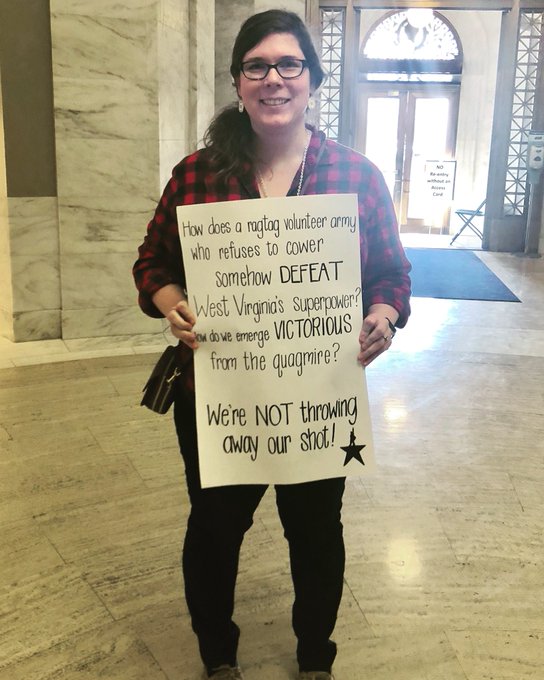 How does a ragtag volunteer army
who refuses to cower
somehow DEFEAT
West Virginia's superpower?
How do we emerge VICTORIOUS
from the quagmire?
We're NOT throwing
away our shot!
NO
Re-entry
without an
Access
Card